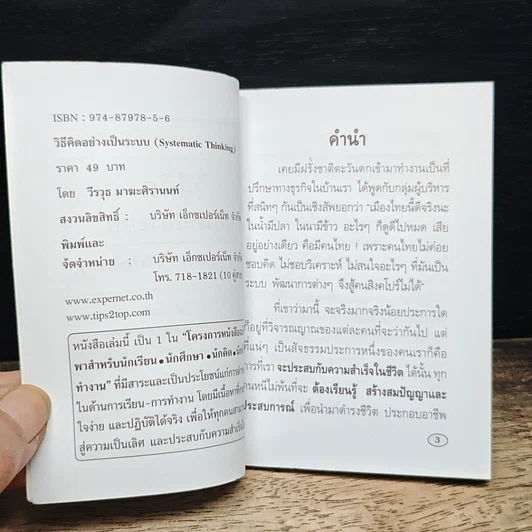 ISBN : 974-87978-5-6
วิธีคิดอย่างเป็นระบบ (Systematic Thinking)
ราคา 49 บาท
โดย วีรวุธ มาฆะศิรานนท์
สงวนลิขสิทธิ์ : บริษัท เอ็กซเปอร์เน็ท จำกัด
พิมพ์และ
จัดจำหน่าย : บริษัท เอ็กซเปอร์เน็ท จำกัด
โทร. 718-1821 (10 คู่สาย
www.expernet.co.th
www.tips2top.com
หนังสือเล่มนี้ เป็น 1 ใน "โครงการหนังสือ
พาสำหรับนักเรียน • นักศึกษา • นักคิด •
ทำงาน" ที่มีสาระและเป็นประโยชน์แก่การ
ในด้านการเรียน-การทำงาน โดยมีเนื้อหาที่
ใจง่าย และปฏิบัติได้จริง เพื่อให้ทุกคน
สู่ความเป็นเลิศ และประสบความสำเร็จ
คำนำ
เคยมีฝรั่งชาติตะวันตกเข้ามาทำงานเป็นที่
ปรึกษาทางธุรกิจในบ้านเรา ได้พูดกับกลุ่มผู้บริหาร
ที่สนิทๆ กันเป็นเชิงสัพยอกว่า "เมืองไทยนี้ดีจริงนะ
ในน้ำมีปลา ในนามีข้าว อะไรๆ ก็ดูดีไปหมด เสีย
อยู่อย่างเดียว คือมีคนไทย ! เพราะคนไทยไม่ค่อย
ชอบคิด ไม่ชอบวิเคราะห์ ไม่สนใจอะไรๆ ที่มันเป็น
ระบบ พัฒนาการต่างๆ จึงสู้คนสิงคโปร์ไม่ได้"
ที่เขาว่ามานี้ จะจริงมากจริงน้อยประการใด
ก็อยู่ที่วิจารณญาณของแต่ละคนที่จะว่ากันไป แต่
ที่แน่ๆ เป็นสัจธรรมประการหนึ่งของคนเราก็คือ
การที่เราจะประสบกับความสำเร็จในชีวิต ได้นั้น ทุก
คนหนีไม่พ้นที่จะ ต้องเรียนรู้ สร้างสมปัญญาและ
ประสบการณ์ เพื่อนำมาดำรงชีวิต ประกอบอาชีพ
3